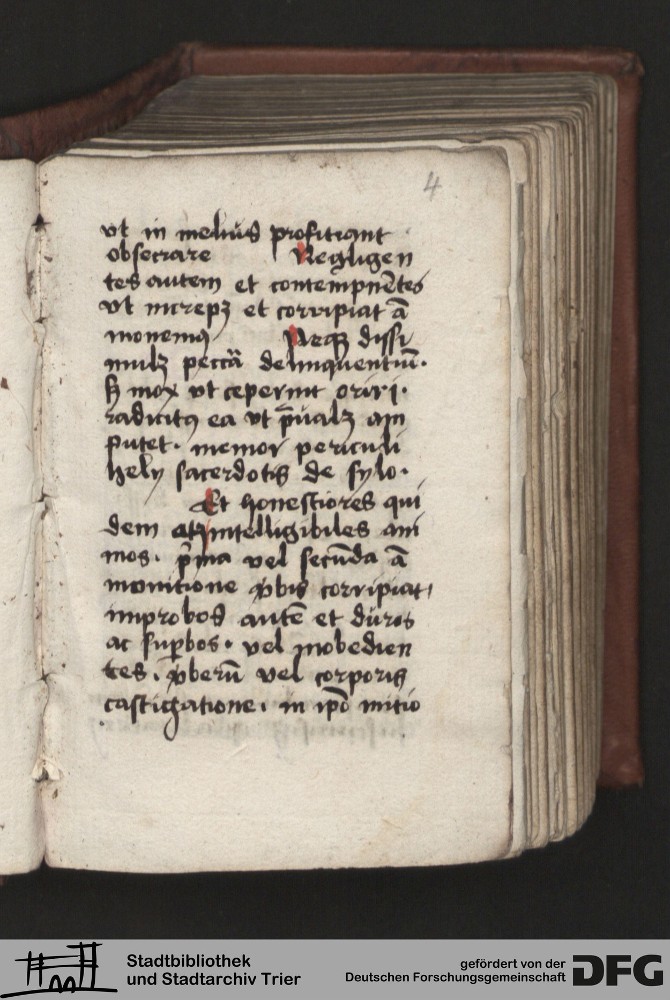 4
vt in melius proficiant
obsecrare Negligen
tes autem et contempnētes
vt increpꝫ et corripiat ā
monemꝰ Neqꝫ dissi
mulꝫ peccā delinquentiū.
sꝫ mox vt ceperint oriri.
radicitꝰ ea vt p̄ualꝫ am
putet. memor periculi
hely sacerdotis de sylo.
Et honestiores qui
dem atqꝫ intelligibiles ani
mos. p̄ma vel secūda ā
monitione v̄bis corripiat,
improbos autē et duros
ac suꝑbos. vel inobedien
tes. v̄berū vel corporis
castigatione. in ip̄o initio
Stadtbibliothek
und Stadtarchiv Trier
gefördert von der
Deutschen Forschungsgemeinschaft DFG